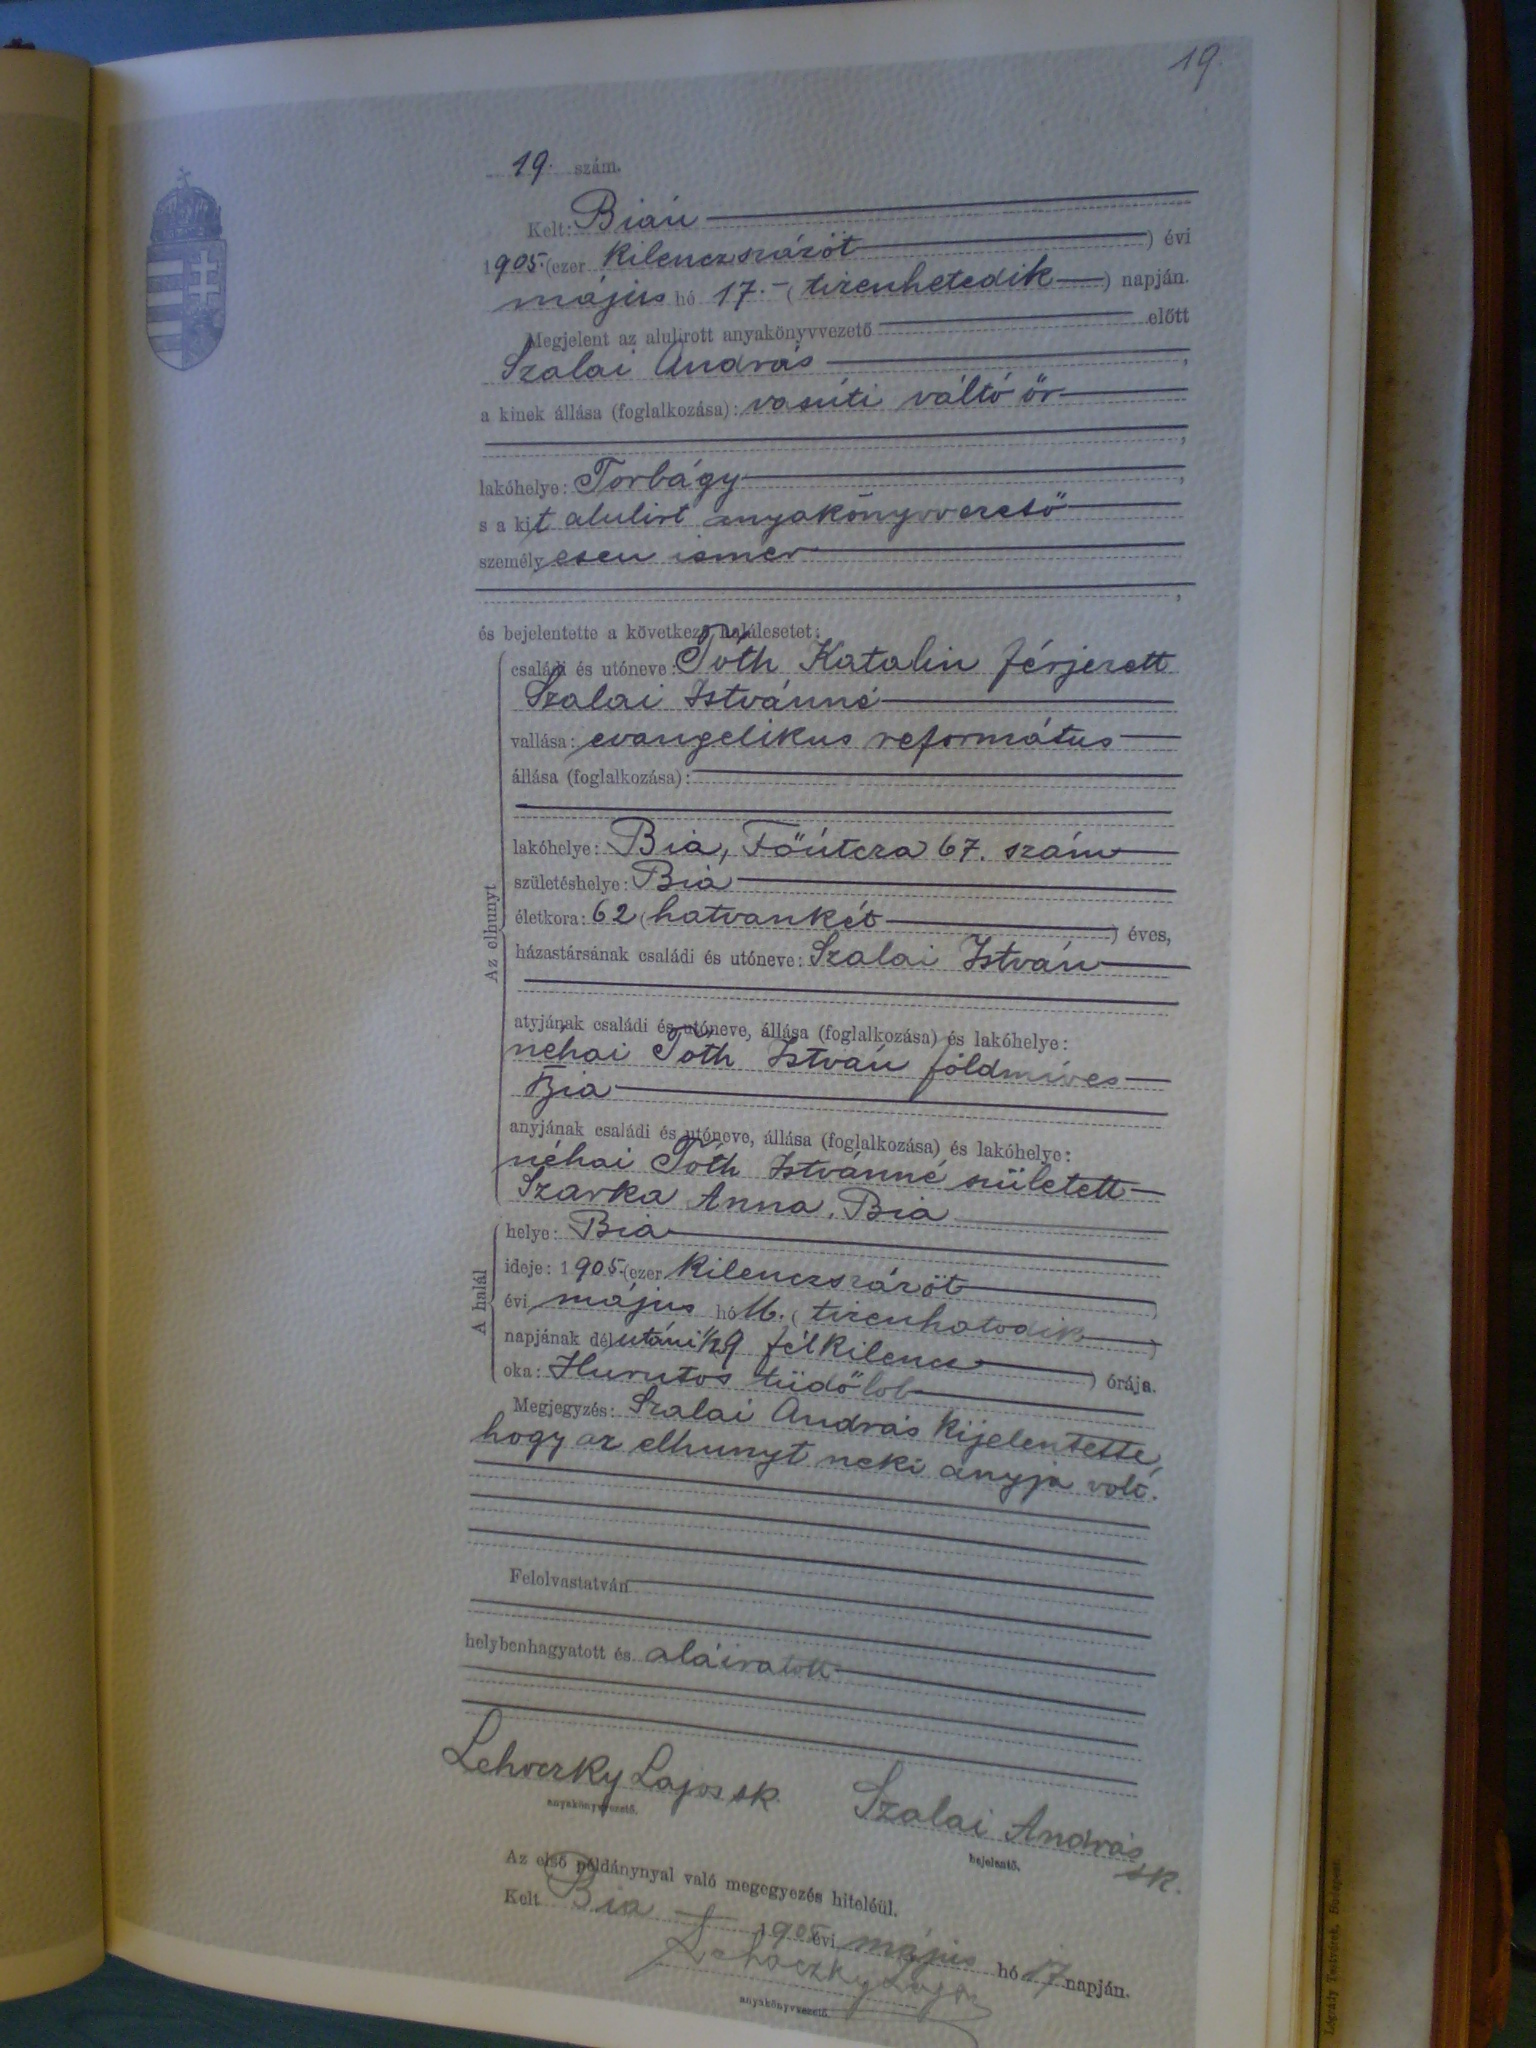 19.
19. szám.
Kelt: Bián
1905. (ezer kilenczszázöt) évi
május hó 17.- (tizenhetedik) napján.
Megjelent az alulirott anyakönyvvezető előtt
Szalai András,
a kinek állása (foglalkozása): vasúti váltó őr
,
lakóhelye: Torbágy,
s a kit alulirt anyakönyvvezető
személyesen ismer
,
és bejelentette a következő halálesetet:
Az elhunyt
családi és utóneve: Tóth Katalin férjezett
Szalai Istvánné
vallása: evangelikus református
állása (foglalkozása):
lakóhelye: Bia, Főútcza 67. szám
születéshelye: Bia
életkora: 62 (hatvankét) éves,
házastársának családi és utóneve: Szalai István
atyjának családi és utóneve, állása (foglalkozása) és lakóhelye:
néhai Tóth István földmíves
Bia
anyjának családi és utóneve, állása (foglalkozása) és lakóhelye:
néhai Tóth Istvánné született
Szarka Anna, Bia
A halál
helye: Bia
ideje: 1905. (ezer kilenczszázöt)
évi május hó 16. (tizenhatodik)
napjának délutáni ½9 félkilencz) órája.
oka: Hurutos tüdőlob
Megjegyzés: Szalai András kijelentette,
hogy az elhunyt neki anyja volt.
Felolvastatván
helybenhagyatott és aláiratott
Lehoczky Lajos sk. Szalai András
anyakönyvvezető. bejelentő. sk.
Az első példánynyal való megegyezés hiteléül.
Kelt Bia 1905 évi május hó 17 napján.
Lehoczky Lajos
anyakönyvvezető.
Légrády Testvérek, Budapest